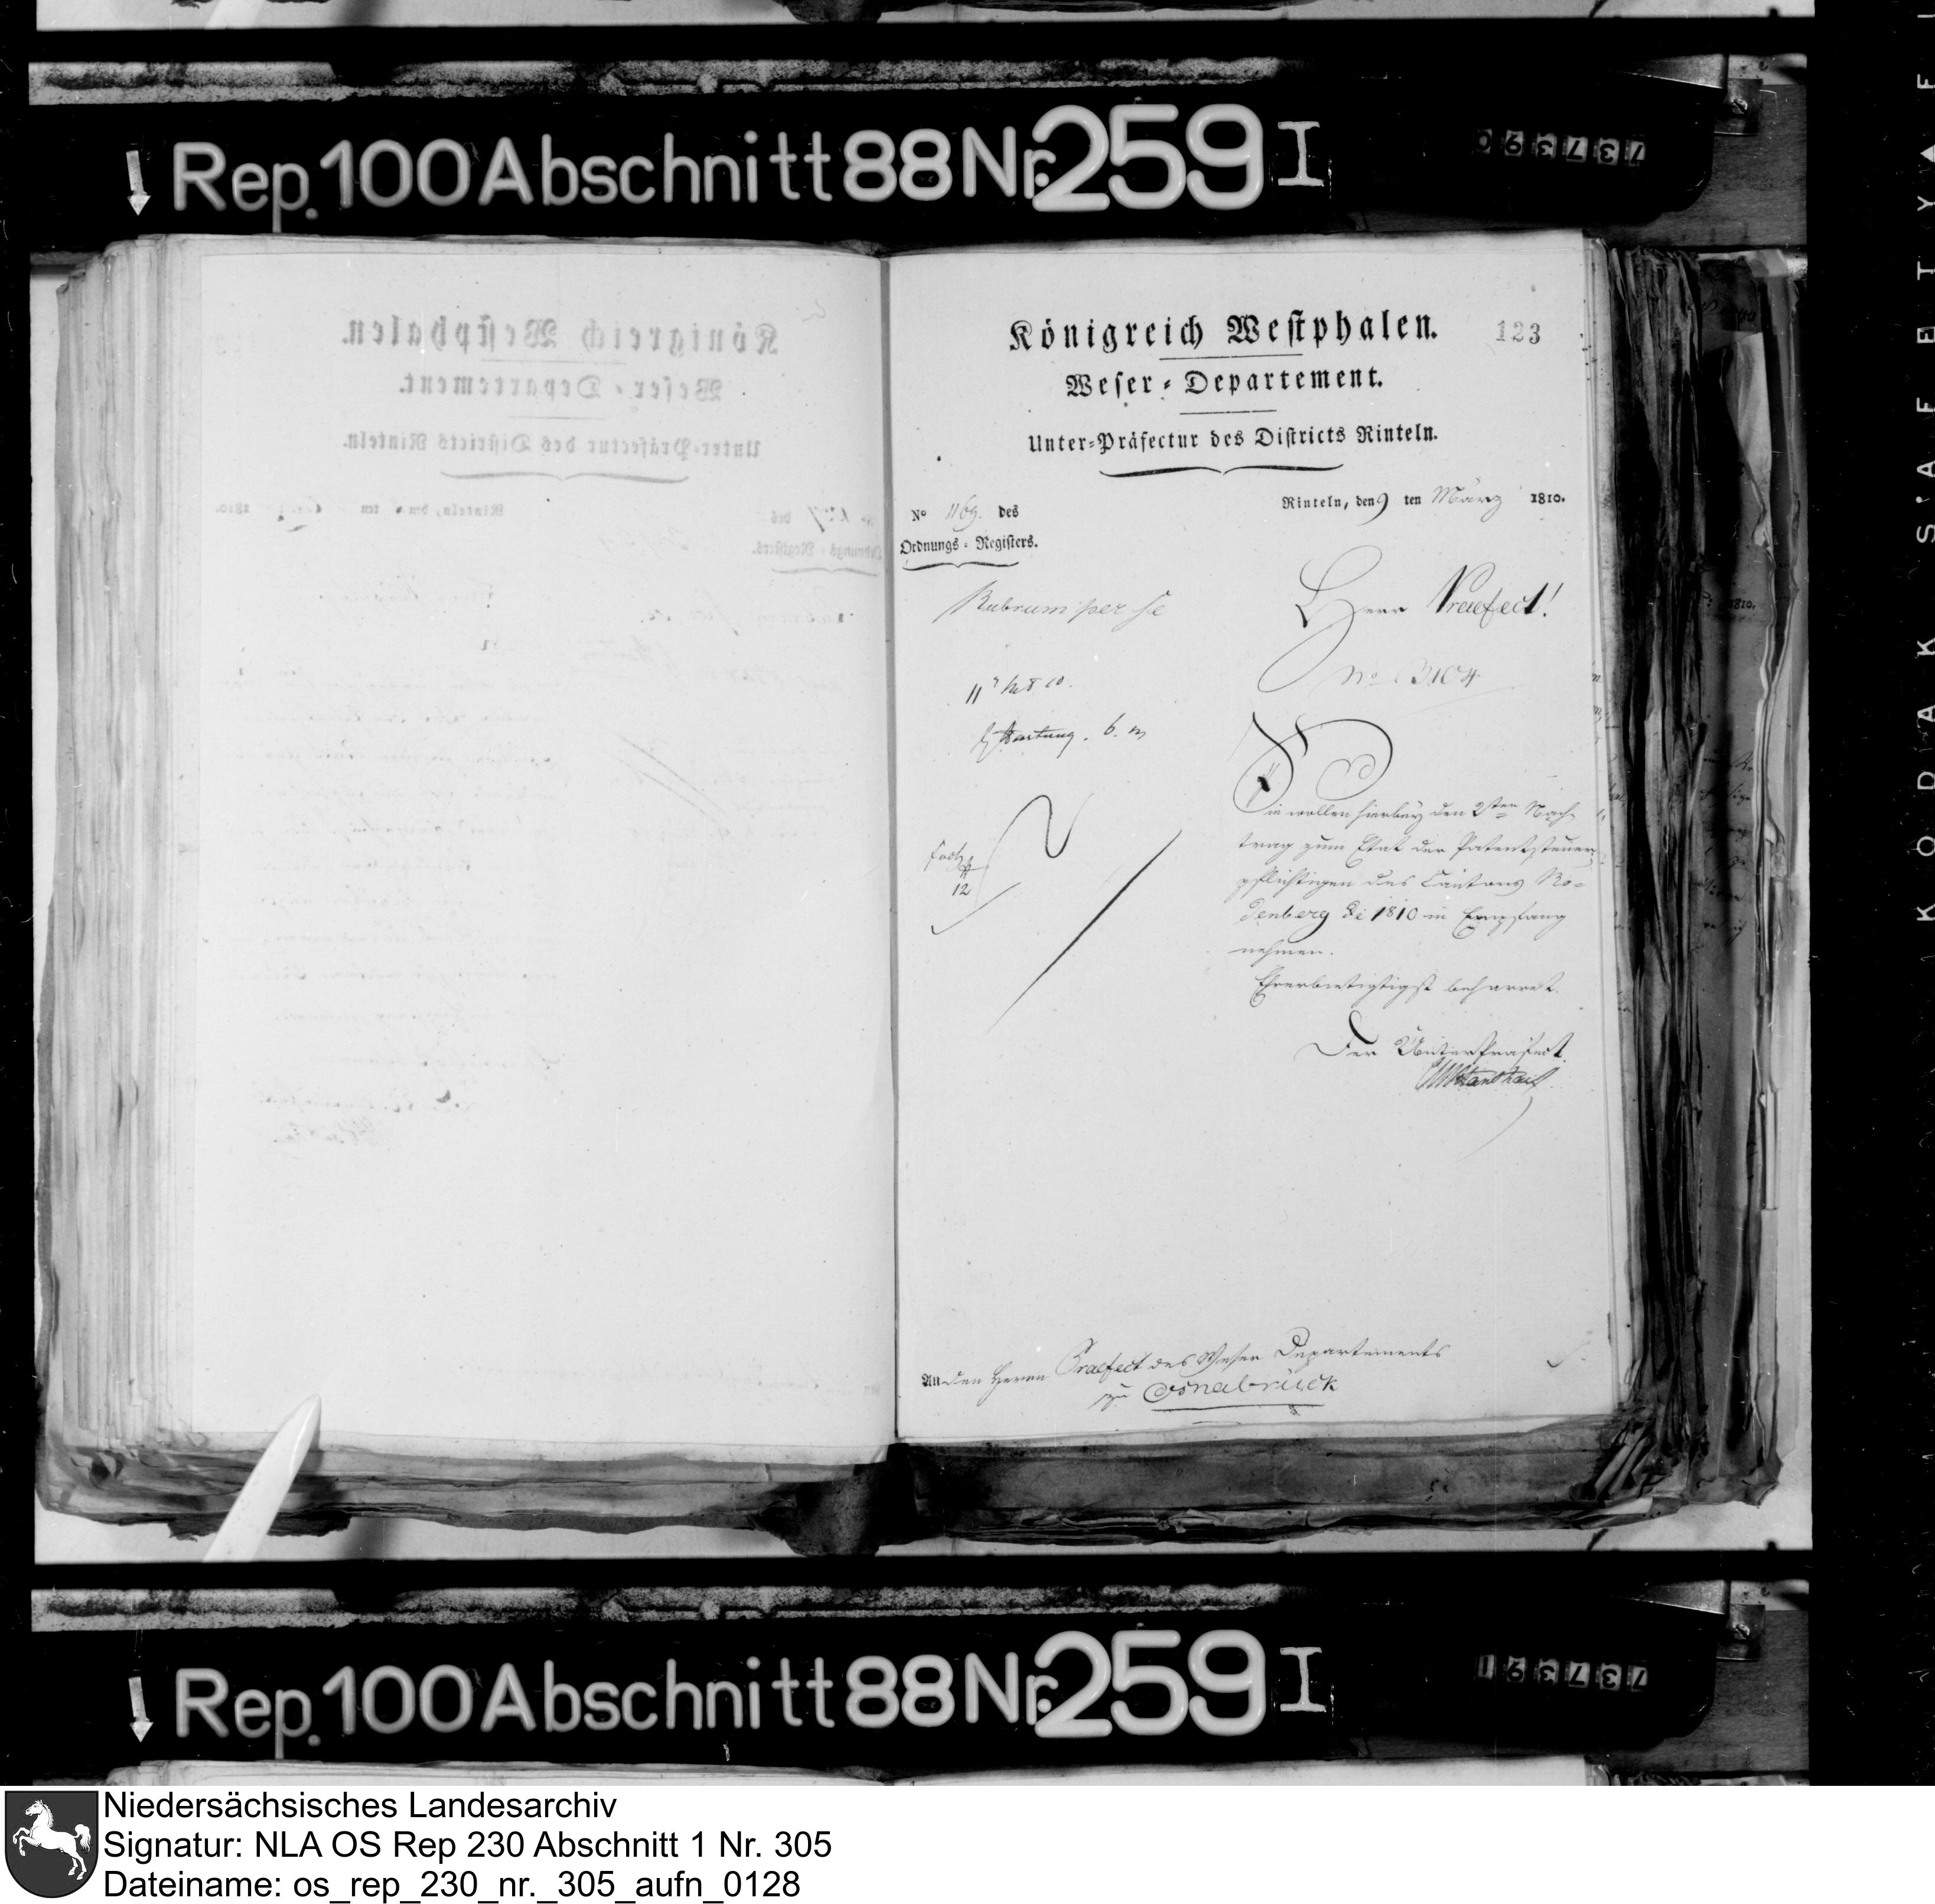 Rep. 100 Abschnitt 88 Nr. 259 I
737390
123
Königreich Westphalen.
Weser-Departement.
Unter-Präfectur des Districts Rinteln.
Rinteln, den 9 ten März 1810.
No 1169. des
Ordnungs-Registers.
Rubrum per se
Herr Praefect!
No 3104
Hartung. b. m
Sie wollen hierbey den 2ten Nach-
trag zum Etat der Patentsteuer-
pflichtigen des Cantons Ro-
denberg de 1810 in Empfang
nehmen.
12
Ehrerbietigst beharret.
Der UnterPräfect.
An den Herrn Praefect des Weser Departements
zu Osnabrück
Rep. 100 Abschnitt 88 Nr. 259 I
737391
KODAK SAFETY
Niedersächsisches Landesarchiv
Signatur: NLA OS Rep 230 Abschnitt 1 Nr. 305
Dateiname: os_rep_230_nr._305_aufn_0128